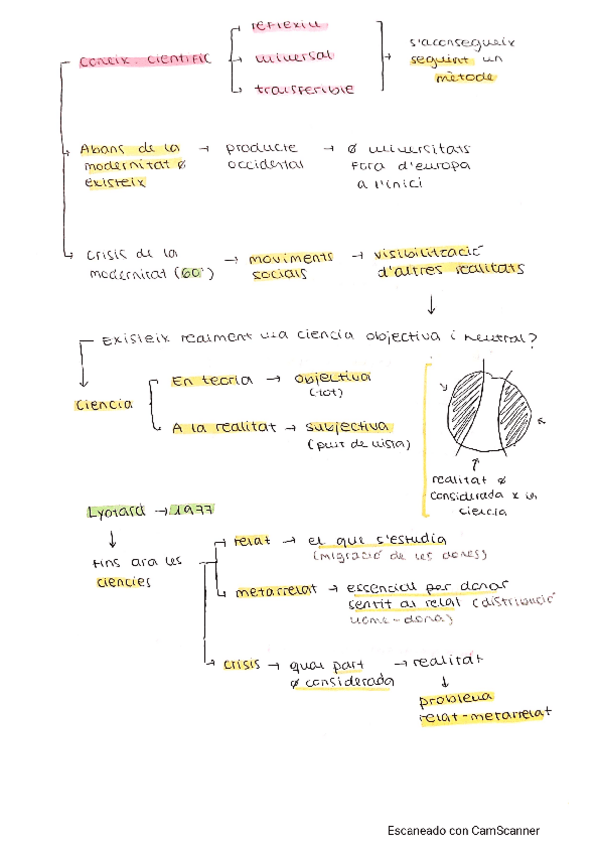 reflexiu
coneix. científic → universal
transferible
s'aconsegueix
seguint un
mètode
Abans de la → producte → ø universitats
modernitat ø occidental fora d'europa
existeix a l'inici
crisis de la → moviments → visibilització
modernitat (60') socials d'altres realitats
Existeix realment una ciencia objectiva i neutral?
En teoria → objectiva
(tot)
ciencia
A la realitat → subjectiva
(punt de vista)
realitat ø
considerada x la
ciencia
Lyotard → 1977
fins ara les
ciencies
relat → el que s'estudia
(migració de les dones)
metarrelat → essencial per donar
sentit al relat (distribució
home-dona)
crisis → quan part → realitat
ø considerada
problema
relat-metarrelat
Escaneado con CamScanner